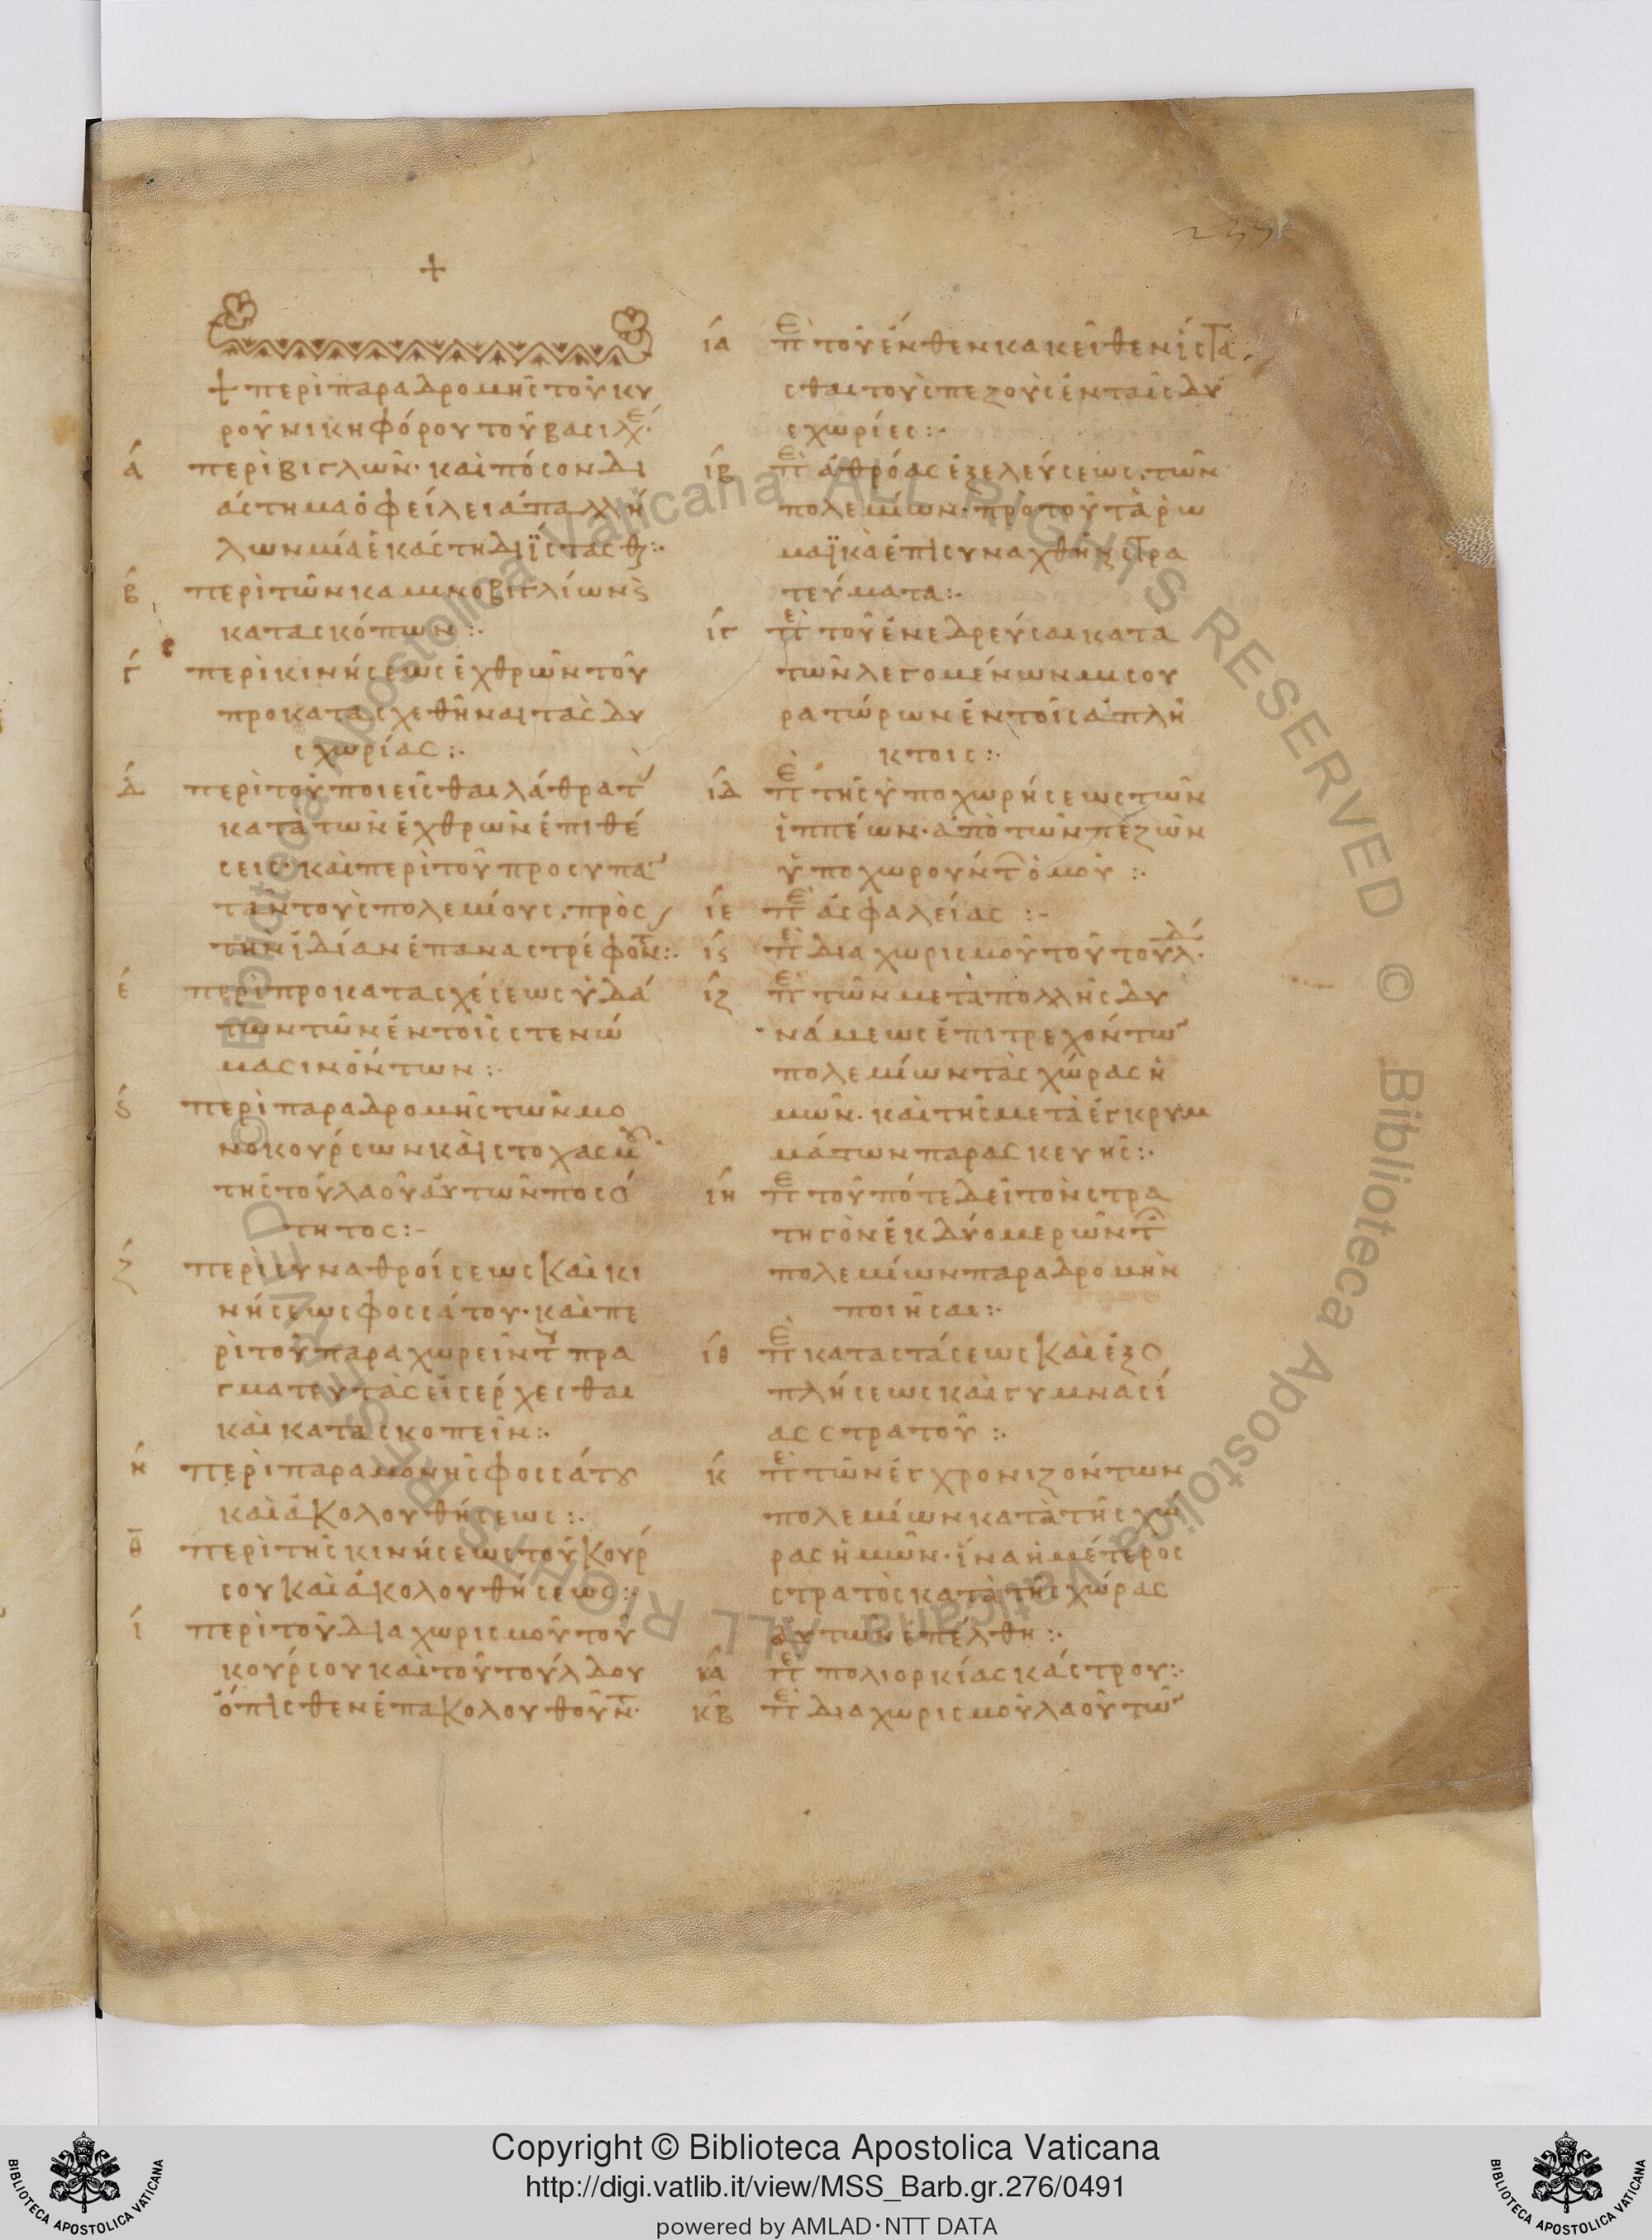 +
+ περὶ παραδρομῆς τοῦ κυ
ροῦ νικηφόρου τοῦ βασιλέ·
ά περὶ βιγλῶν· καὶ πόσον δι
άστημα ὀφείλει ἀπ ἀλλή
λων μία ἑκάστη διΐστασθ:·
β περὶ τῶν καμινοβιγλίων ϗ
κατασκόπων:·
γ περὶ κινήσεως ἐχθρῶν τοῦ
προκατασχεθῆναι τὰς δυ
σχωρίας:·
δ περὶ τοῦ ποιεῖσθαι λάθρα τ
κατὰ τῶν ἐχθρῶν ἐπιθέ
σεις· καὶ περὶ τοῦ προσυπα
τᾶν τοὺς πολεμίους, πρὸς
τὴν ἰδίαν ἐπαναστρέφοντ:·
έ περὶ προκατασχέσεως ὑδά
των τῶν ἐν τοῖς στενώ
μασιν ὄντων:·
ϛ περὶ παραδρομῆς τῶν μο
νοκούρσων καὶ στοχασμ
τῆς τοῦ λαοῦ αὐτῶν ποσό
τητος:-
ζ περὶ συναθροίσεως καὶ κι
νήσεως φοσσάτου· καὶ πε
ρὶ τοῦ παραχωρεῖν τ πρα
γματευτὰς εἰσέρχεσθαι
καὶ κατασκοπεῖν:·
ή περὶ παραμονῆς φοσσάτου
καὶ ἀκολουθήσεως:·
θ περὶ τῆς κινήσεως τοῦ κούρ
σου καὶ ἀκολουθήσεως:·
ί περὶ τοῦ διαχωρισμοῦ τοῦ
κούρσου καὶ τοῦ τούλδου
ὄπισθεν ἐπακολουθοῦντ·
ιά πε τοῦ ἔνθεν κακεῖθεν ἵστα
σθαι τοὺς πεζοὺς ἐν ταῖς δυ
σχωρίες:·
ιβ πε ἀθρόας ἐξελεύσεως, τῶν
πολεμίων· προ τοῦ τὰ ῥω
μαϊκὰ ἐπισυναχθῆναι στρα
τεύματα:·
ιγ πε τοῦ ἐνεδρεύσαι κατα
τῶν λεγομένων μσου
ρατώρων ἐν τοῖς ἀπλή
κτοις:·
ιδ πε τῆς ὑποχωρήσεως τῶν
ἱππέων· ἀπὸ τῶν πεζῶν
ὑποχωρούντ ὁμοῦ:·
ιε πε ἀσφαλείας:-
ις πε διαχωρισμοῦ τοῦ τούλδ·
ιζ πε τῶν μετὰ πολλῆς δυ
νάμεως ἐπιτρεχόντω
πολεμίων τὰς χώρας ἡ
μῶν· καὶ τῆς μετὰ ἐγκρυμ
μάτων παρασκευῆς:·
ιη πε τοῦ πότε δεῖ τὸν στρα
τηγὸν ἐκ δύο μερῶν τ
πολεμίων παραδρομὴν
ποιῆσαι:·
ιθ πε καταστάσεως καὶ ἐξο
πλήσεως καὶ γυμνασί
ας στρατοῦ:·
κ πε τῶν ἐγχρονιζόντων
πολεμίων κατὰ τῆς χώ
ρας ἡμῶν· ἵνα ἡμέτερος
στρατὸς κατὰ τῆς χώρας
αὐτῶν ἐπέλθη:·
κα πε πολιορκίας κάστρου:·
κβ πε διαχωρισμοῦ λαοῦ τῶ
Copyright © Biblioteca Apostolica Vaticana
http://digi.vatlib.it/view/MSS_Barb.gr.276/0491
powered by AMLAD·NTT DATA